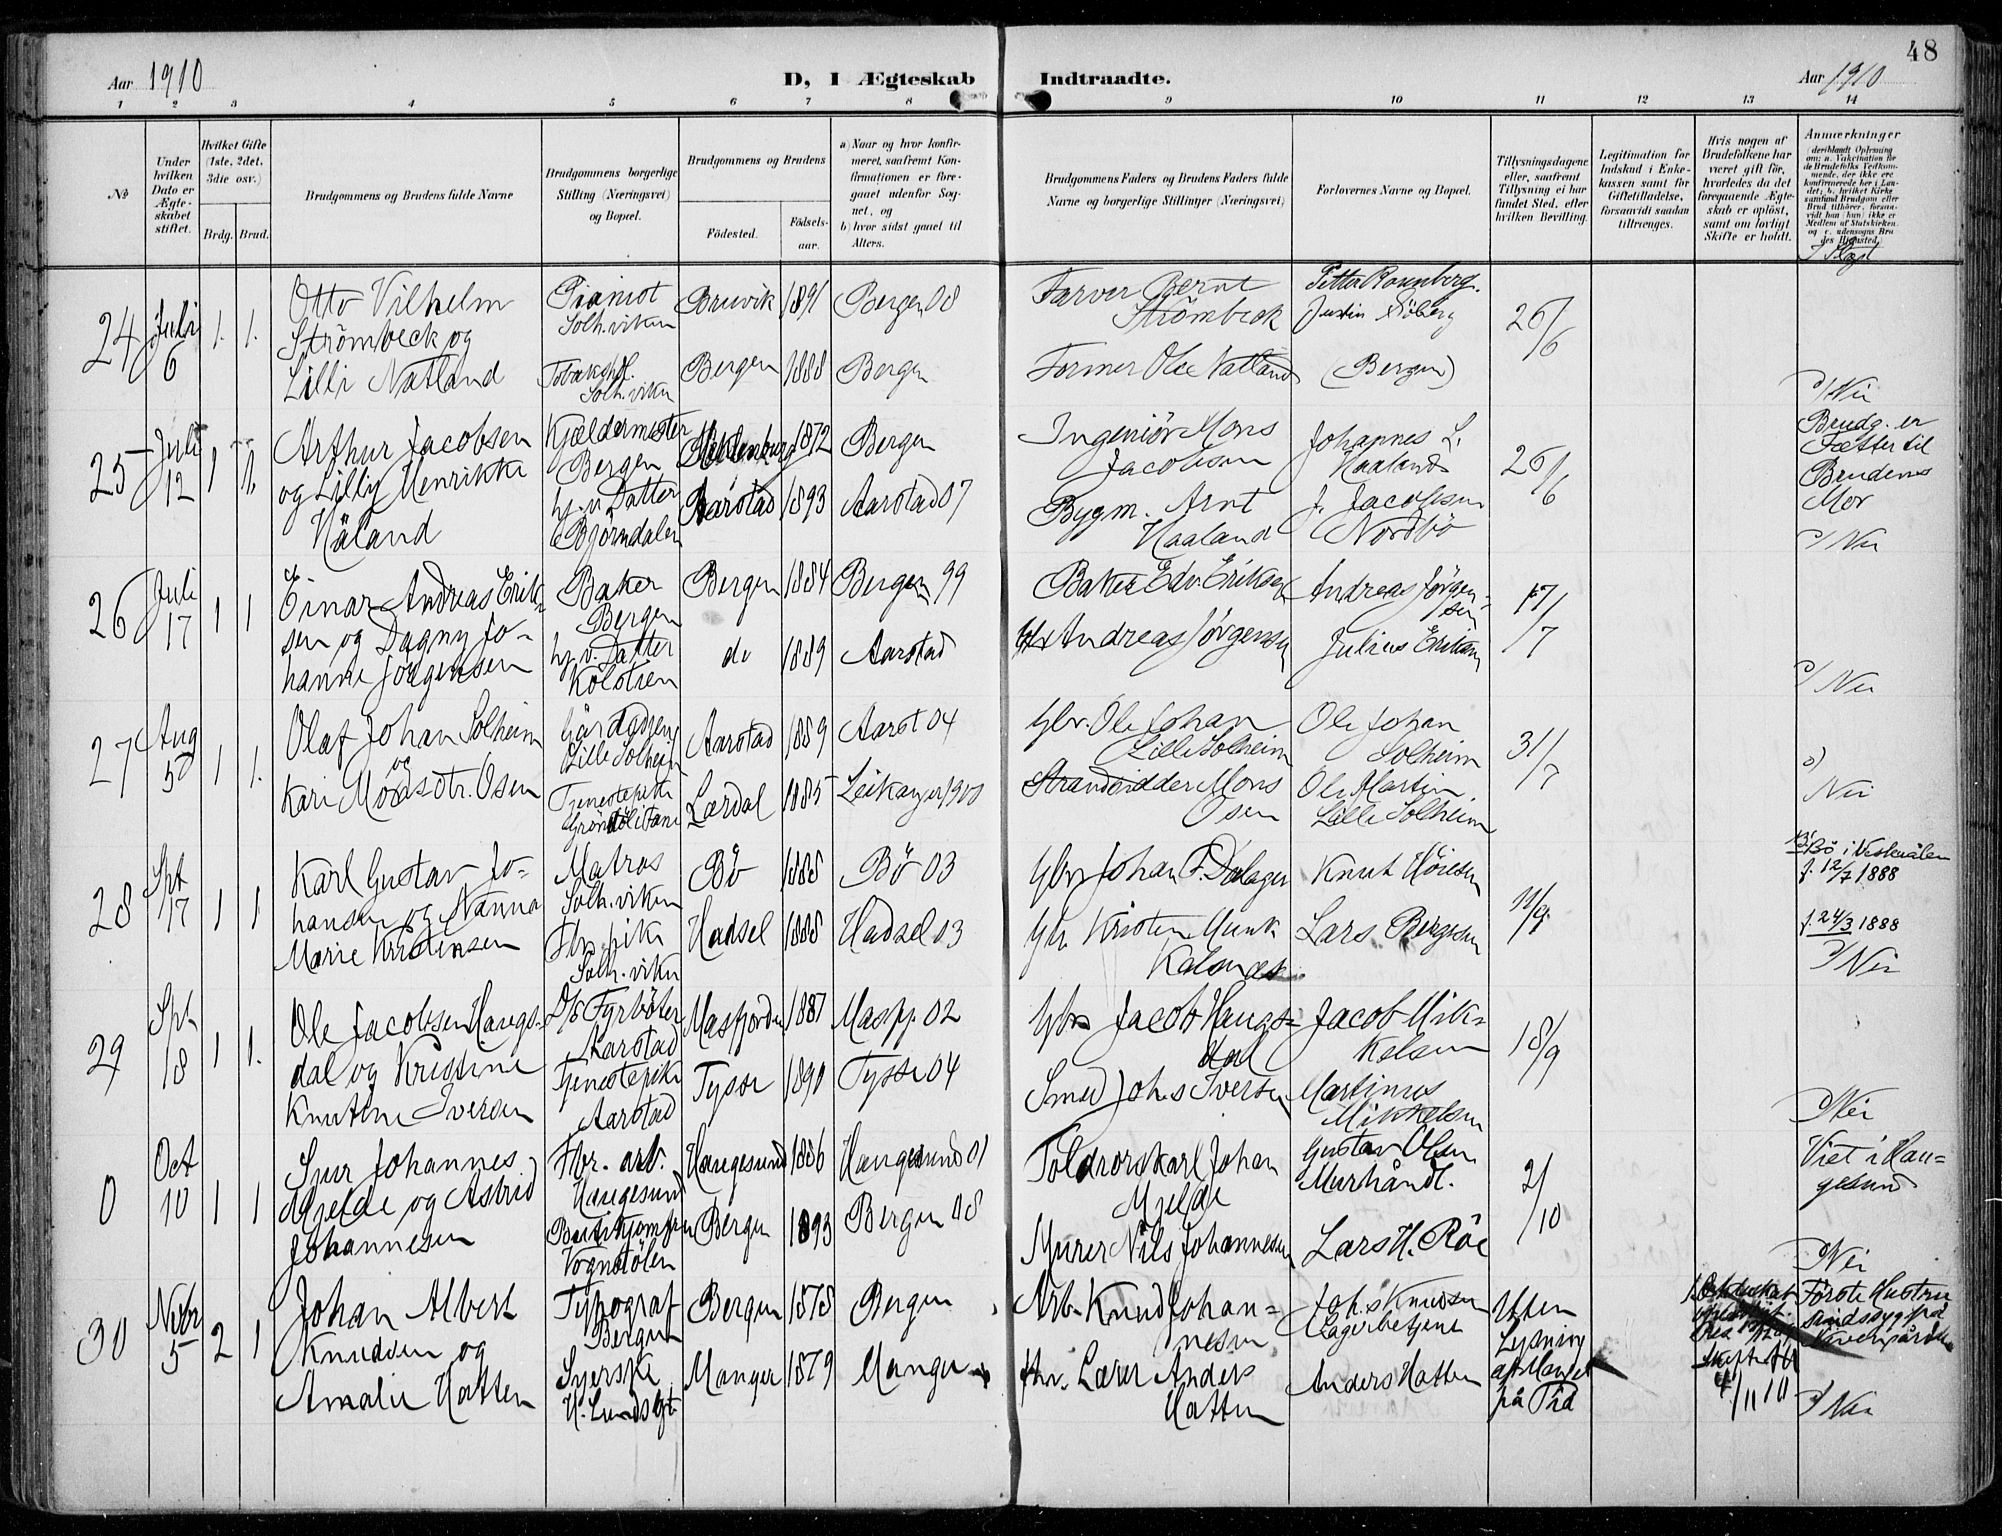 48
Aar 1910
D, I Ægteskab Indtraadte.
Aar 1910
1 2 3 4 5 6 7 8 9 10 11 12 13 14
No
Under hvilken Dato er Ægteskabet stiftet.
Hvilket Gifte (1ste, 2det, 3die osv.)
Brdg. Brud.
Brudgommens og Brudens fulde Navne
Brudgommens borgerlige Stilling (Næringsvei) og Bopæl.
Brudgommens og Brudens
Födested.
Födsels-aar.
a) Naar og hvor konfirmeret, saafremt Konfirmationen er foregaaet udenfor Sognet, og
b) hvor sidst gaaet til Alters.
Brudgommens Faders og Brudens Faders fulde Navne og borgerlige Stillinger (Næringsvei)
Forlovernes Navne og Bopæl.
Tillysningsdagene eller, saafremt Tillysning ei har fundet Sted, efter hvilken Bevilling.
Legitimation for Indskud i Enkekassen samt for Giftetilladelse, forsaavidt saadan tiltrænges.
Hvis nogen af Brudefolkene har været gift før, hvorledes da det foregaaende Ægteskab er oplöst, samt om lovligt Skifte er holdt.
Anmærkninger
24 Juli 6 1. 1.
Otto Vilhelm
Strømbeck og
Lilli Natland
Pianist
Solh.viken
Solh.viken
Bruvik 1891 Bergen 08
Bergen 1888 Bergen
Farver Bernt
Strømbeck
Former Ole Natland
Petter Rosenberg.
Justin Sjöberg
(Bergen)
26/6
Nei
25 Juli 12 1 1.
Arthur Jacobsen
og Lilly Henrikke
Håland
Kjældermester
Bergen
hj.v. Datter
Björndalen
1872 Bergen
Aarstad 1893 Aarstad 07
Ingeniör Mons
Jacobsen
Bygm. Arnt
Haaland
Johannes L.
Haaland
J. Jacobsen
Nordbö
26/6
Brudg. er
Fætter til
Brudens
Mor
Nei
26 Juli 17 1 1
Einar Andreas Erik-
sen og Dagny Jo-
hanne Jörgensen
Baker
Bergen
hj.v. Datter
Kolstien
Bergen 1884 Bergen 99
do 1889 Aarstad
Baker Edv. Eriksen
Andreas Jörgensen
Andreas Jörgen-
sen
Julius Eriksen
17/7
Nei
27 Aug 5 1 1.
Olaf Johan Solheim
og
Kari Monsdtr. Osen
Lille Solheim
Tjenestepike
Aarstad 1889 Aarst 04
Lærdal 1885 Leikanger 1900
Gbr. Ole Johan
Lille Solheim
Strandsidder Mons
Osen
Ole Johan
Solheim
Ole Martin
Lille Solheim
31/7
Nei
28 Spt 17 1 1
Karl Gustav Jo-
hansen og Nanna
Marie Kristensen
Matros
Solh.viken
Solh.viken
Bö 1888 Bö 03
Hadsel 1888 Hadsel 03
Gbr Johan P. Dalager
Kristen Munk
Kalsnes
Knut Höiesen
Lars Bergesen
11/9
Bö i Vesterålen
f. 12/7 1888
f. 24/3 1888
Nei
29 Spt 18 1 1.
Ole Jacobsen Haugs-
dal og Kristine
Knutine Iversen
D/S Fyrböter
Aarstad
Tjenestepike
Aarstad
Masfjorden 1887 Masfj. 02
Tysse 1890 Tysse 04
Gbr Jacob Haugs-
dal
Smed Johs Iversen
Jacob Mik-
kelsen
Martinus
Mikkelsen
18/9
Nei
0 Oct 10 1 1
Johannes
Mjelde og Astrid
Johannesen
Fbr. arb.
Haugesund
Vognstölen
Haugesund 1886 Haugesund 01
Bergen 1893 Bergen 08
Toldrorskarl Johan
Mjelde
Murer Nils Johannesen
Gustav Olsen
Murhåndl.
Lars H. Röe
2/10
Viet i Hau-
gesund
Nei
30 Novbr 5 2 1
Johan Albert
Knudsen og
Amalie Hatten
Typograf
Bergen
Syerske
Bergen 1878 Bergen
Manger 1879 Manger
Arb. Knud Johan-
nesen
Lærer Anders
Hatten
Johs Knudsen
Anders Hatten
Uten
Lysning
på Tid
4/11 10
Første Hustru
Nei